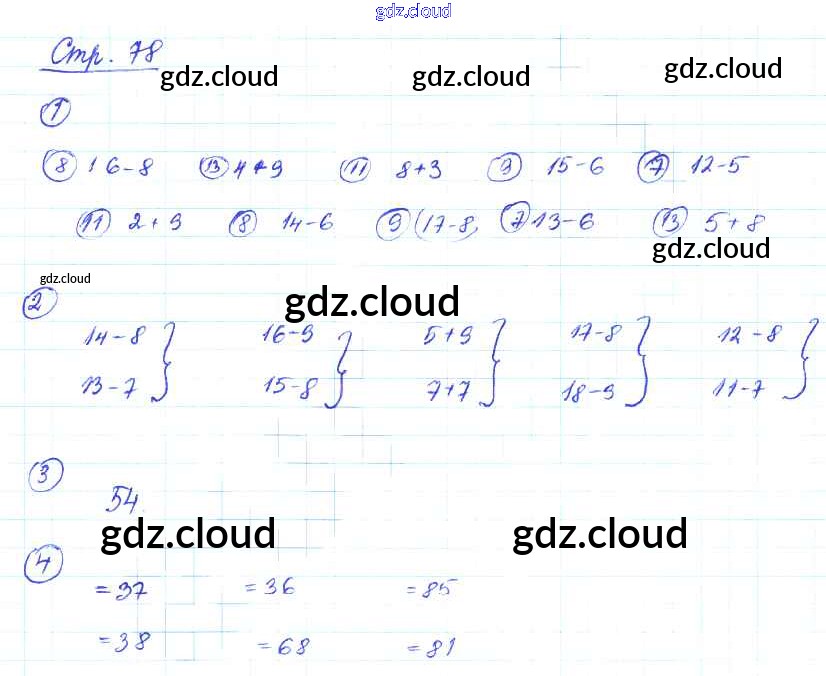 gdz.cloud
Стр. 78
gdz.cloud gdz.cloud gdz.cloud
1
8 16-8 13 4+9 11 8+3 9 15-6 7 12-5
11 2+9 8 14-6 9 (17-8) 7 13-6 13 5+8
gdz.cloud
gdz.cloud
2 gdz.cloud
14-8 } 16-9 } 5+9 } 17-8 } 12-8 }
13-7 15-8 7+7 18-9 11-7
3
54.
gdz.cloud gdz.cloud
4
=37 =36 =85
=38 =68 =81